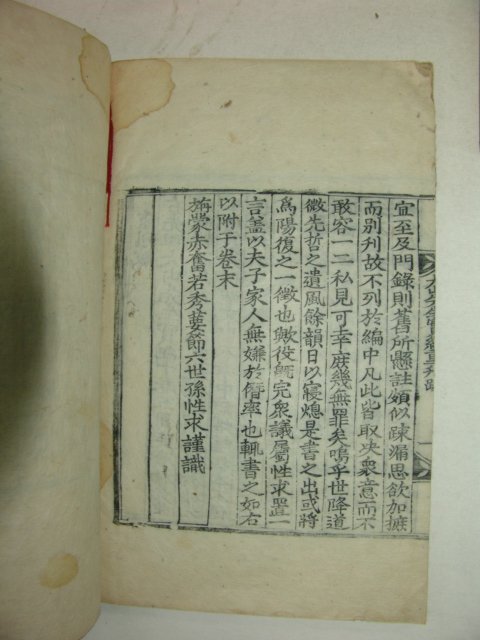 宜至及門錄則舊所懸註頗似疎漏思欲加摭
而別刊故不列於編中凡此皆取决衆意而不
敢容一二私見可幸庶幾無罪矣嗚乎世降道
微先哲之遺風餘韻日以寢熄是書之出或將
爲陽復之一徵也歟役旣完衆議屬性求置一
言盖以夫子家人無嫌於僭率也輒書之如右
以附于卷末
旃蒙赤奮若秀葽節六世孫性求謹識